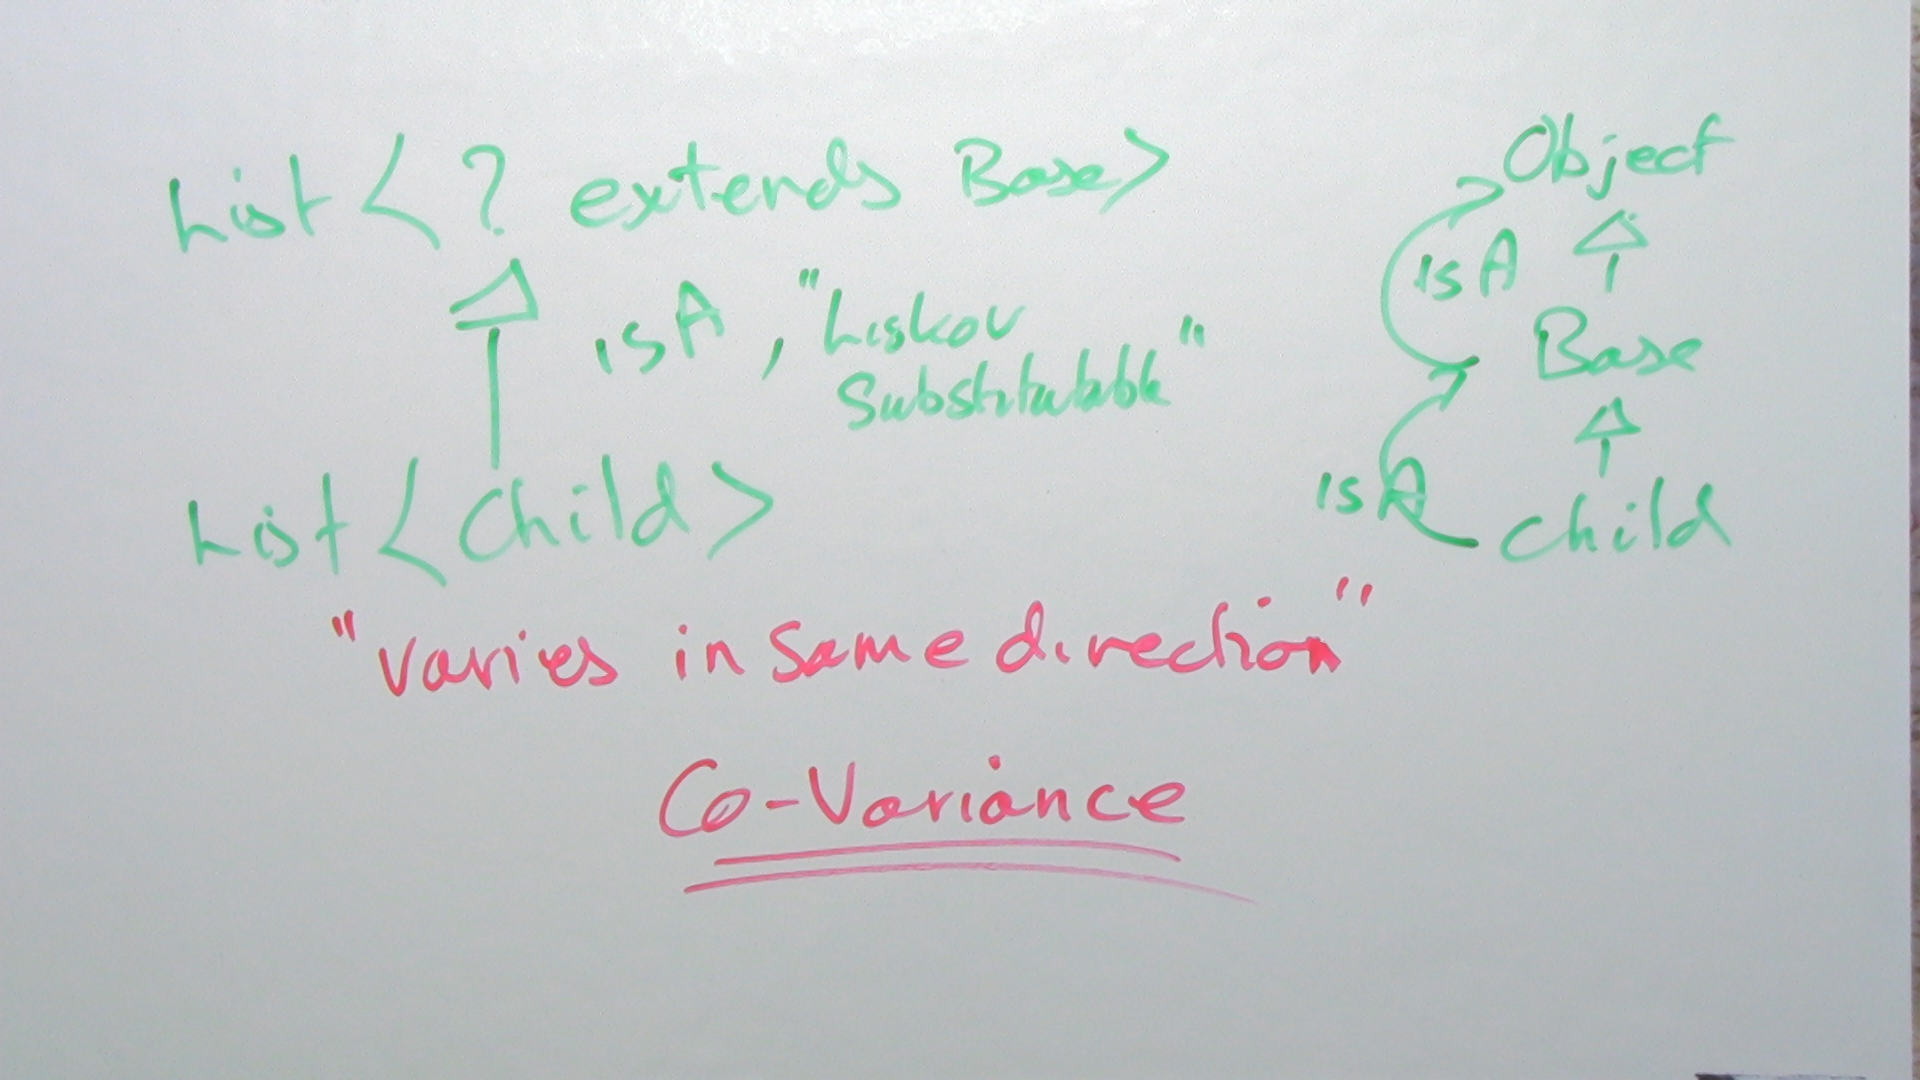 List <? extends Base>
isA, "Liskov
Substitutable"
List <Child>
Object
isA
Base
isA
Child
"varies in same direction"
Co-Variance